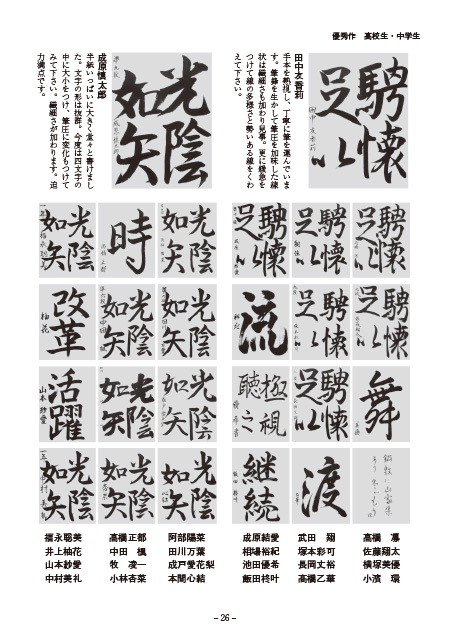 優秀作　高校生・中学生
田中友香莉
手本を熟視し、丁寧に筆を運んでいま
す。筆鋒を生かして筆圧を加味した線
状は繊細さも加わり見事。更に緩急を
つけて線の多様さと勢いある線をくわ
えて下さい。
騁懐
足以
成原慎太郎
半紙いっぱいに大きく堂々と書けまし
た。文字の形は抜群。今度は四文字の
中に大小をつけ、筆圧に変化もつけて
みて下さい。繊細さが加わります。迫
力満点です。
光陰
如矢
騁懐
足以
騁懐
足以
騁懐
足以
騁懐
足以
騁懐
足以
流
舞
騁懐
足以
極視
聴之
渡
継続
光陰
如矢
時
光陰
如矢
光陰
如矢
光陰
如矢
改革
柚花
光陰
如矢
光陰
如矢
活躍
山本紗愛
光陰
如矢
光陰
如矢
光陰
如矢
高橋　凜
佐藤翔太
横塚美優
小濱　環
武田　翔
塚本彩可
長岡丈裕
高橋乙華
成原結愛
相場裕紀
池田優希
飯田柊叶
阿部陽菜
田川万葉
成戸愛花梨
本間心結
高橋正都
中田　楓
牧　凌一
小林杏菜
福永聡美
井上柚花
山本紗愛
中村美礼
– 26 –